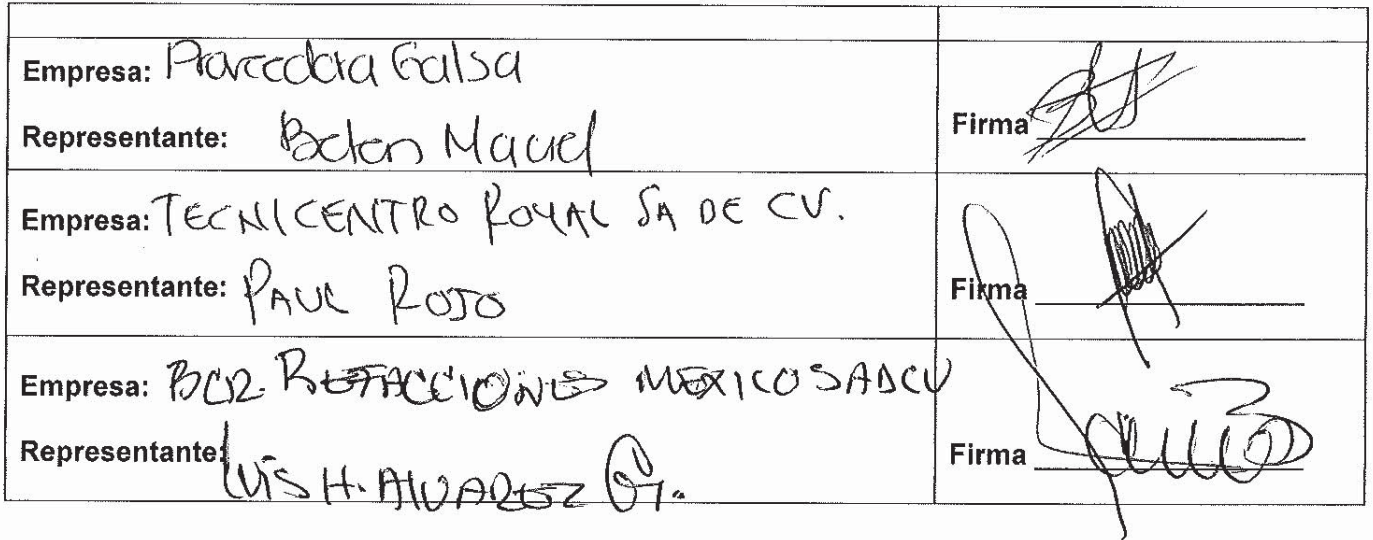 Empresa: Galsa
Representante: Belen
Firma
Empresa: TECNICENTRO ROYAL SA DE CV.
Representante: PAUL ROJO
Firma
Empresa: BCR. REFACCIONES MEXICO SADCV
Representante: LUIS H. ALVAREZ G.
Firma